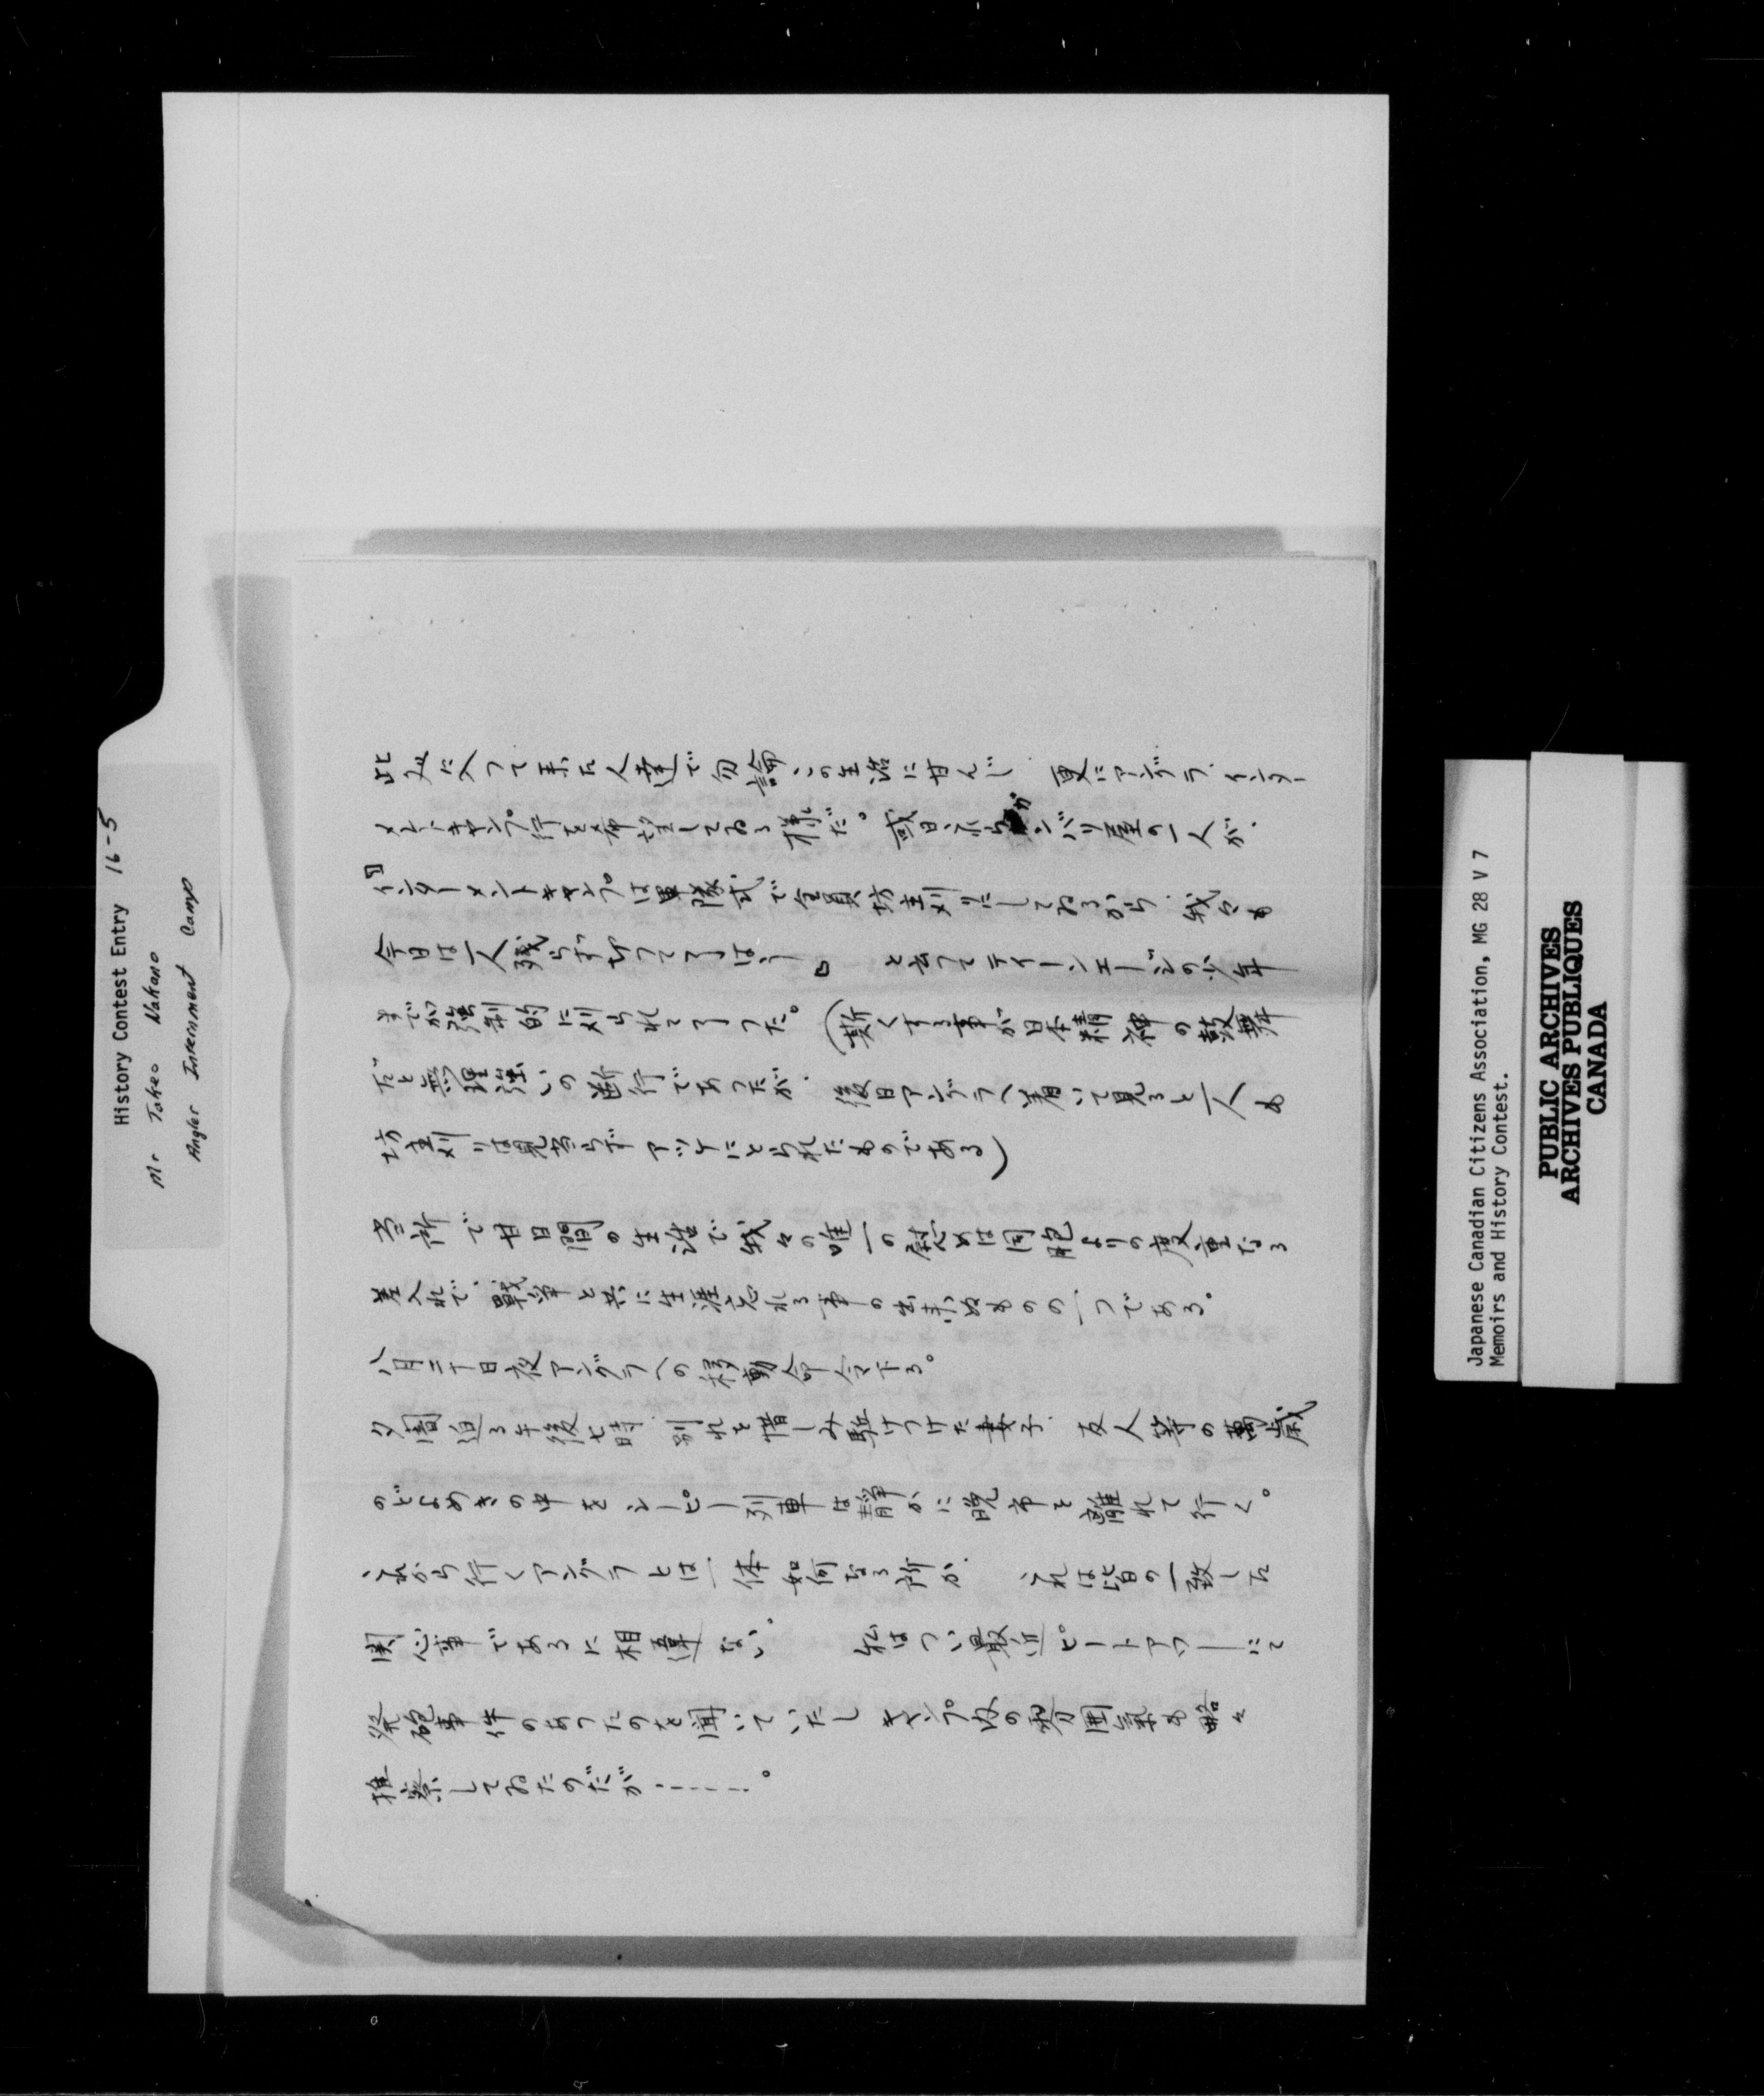 History Contest Entry 16-5
Mr Takeo Nakano
Angler Internment Camp
此処に入つて来た人達で勿論この生活に甘んじ、更にアングラ、インター
メント、キャンプ行を希望してゐる様だ。或日、これらガンバリ屋の一人が、
『インターメントキャンプは軍隊式で全員坊主刈りにしてゐるから、我らも
今日は一人残らず切つて了はう』 と云つてティーンエージの少年
までが強制的に刈られて了つた。(斯くする事が日本精神の鼓舞
だと無理強いの断行であつたが、後日アングラへ着いて見ると一人も
坊主刈りは見当らず アッケにとられたものである)
当所で廿日間の生活で我々の唯一の慰めは同胞よりの度重なる
差入れで、戦争と共に生涯忘れる事の出来ぬものの一つである。
八月二十日夜アングラへの移動命令下る。
夕闇迫る午後七時、別れを惜しみ駈けつけた妻子、友人等の萬歳
のどよめきの中をシーピー列車は静かに晩市を離れて行く。
これから行くアングラとは一体如何なる所か、 これは皆の一致した
関心事であるに相違ない。 私はつい最近ピートアワーにて
発砲事件のあつたのを聞いていたし キャンプ内の雰囲気も略々
推察してゐたのだが……。
Japanese Canadian Citizens Association, MG 28 V 7
Memoirs and History Contest.
PUBLIC ARCHIVES
ARCHIVES PUBLIQUES
CANADA